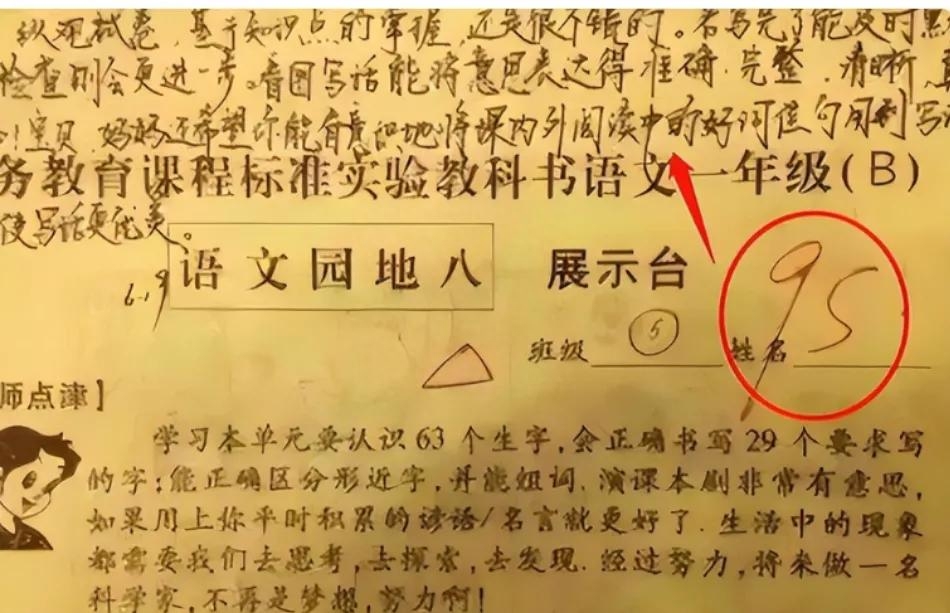 纵观试卷,基于知识点的掌握,还是很不错的。若写完了能及时
检查则会更进一步。看图写话能将意思表达得准确.完整.清晰
宝贝,妈妈还希望你能有意识地将课内外阅读中的好词佳句用到写
务教育课程标准实验教科书语文一年级(B)
使写话更优美。
语文园地八 展示台
6.19
95
班级 5 姓名
师点津】
学习本单元要认识63个生字,会正确书写29个要求写
的字;能正确区分形近字,并能组词.演课本剧非常有意思,
如果用上你平时积累的谚语/名言就更好了.生活中的现象
都需要我们去思考,去探索,去发现.经过努力,将来做一名
科学家,不再是梦想,努力啊!